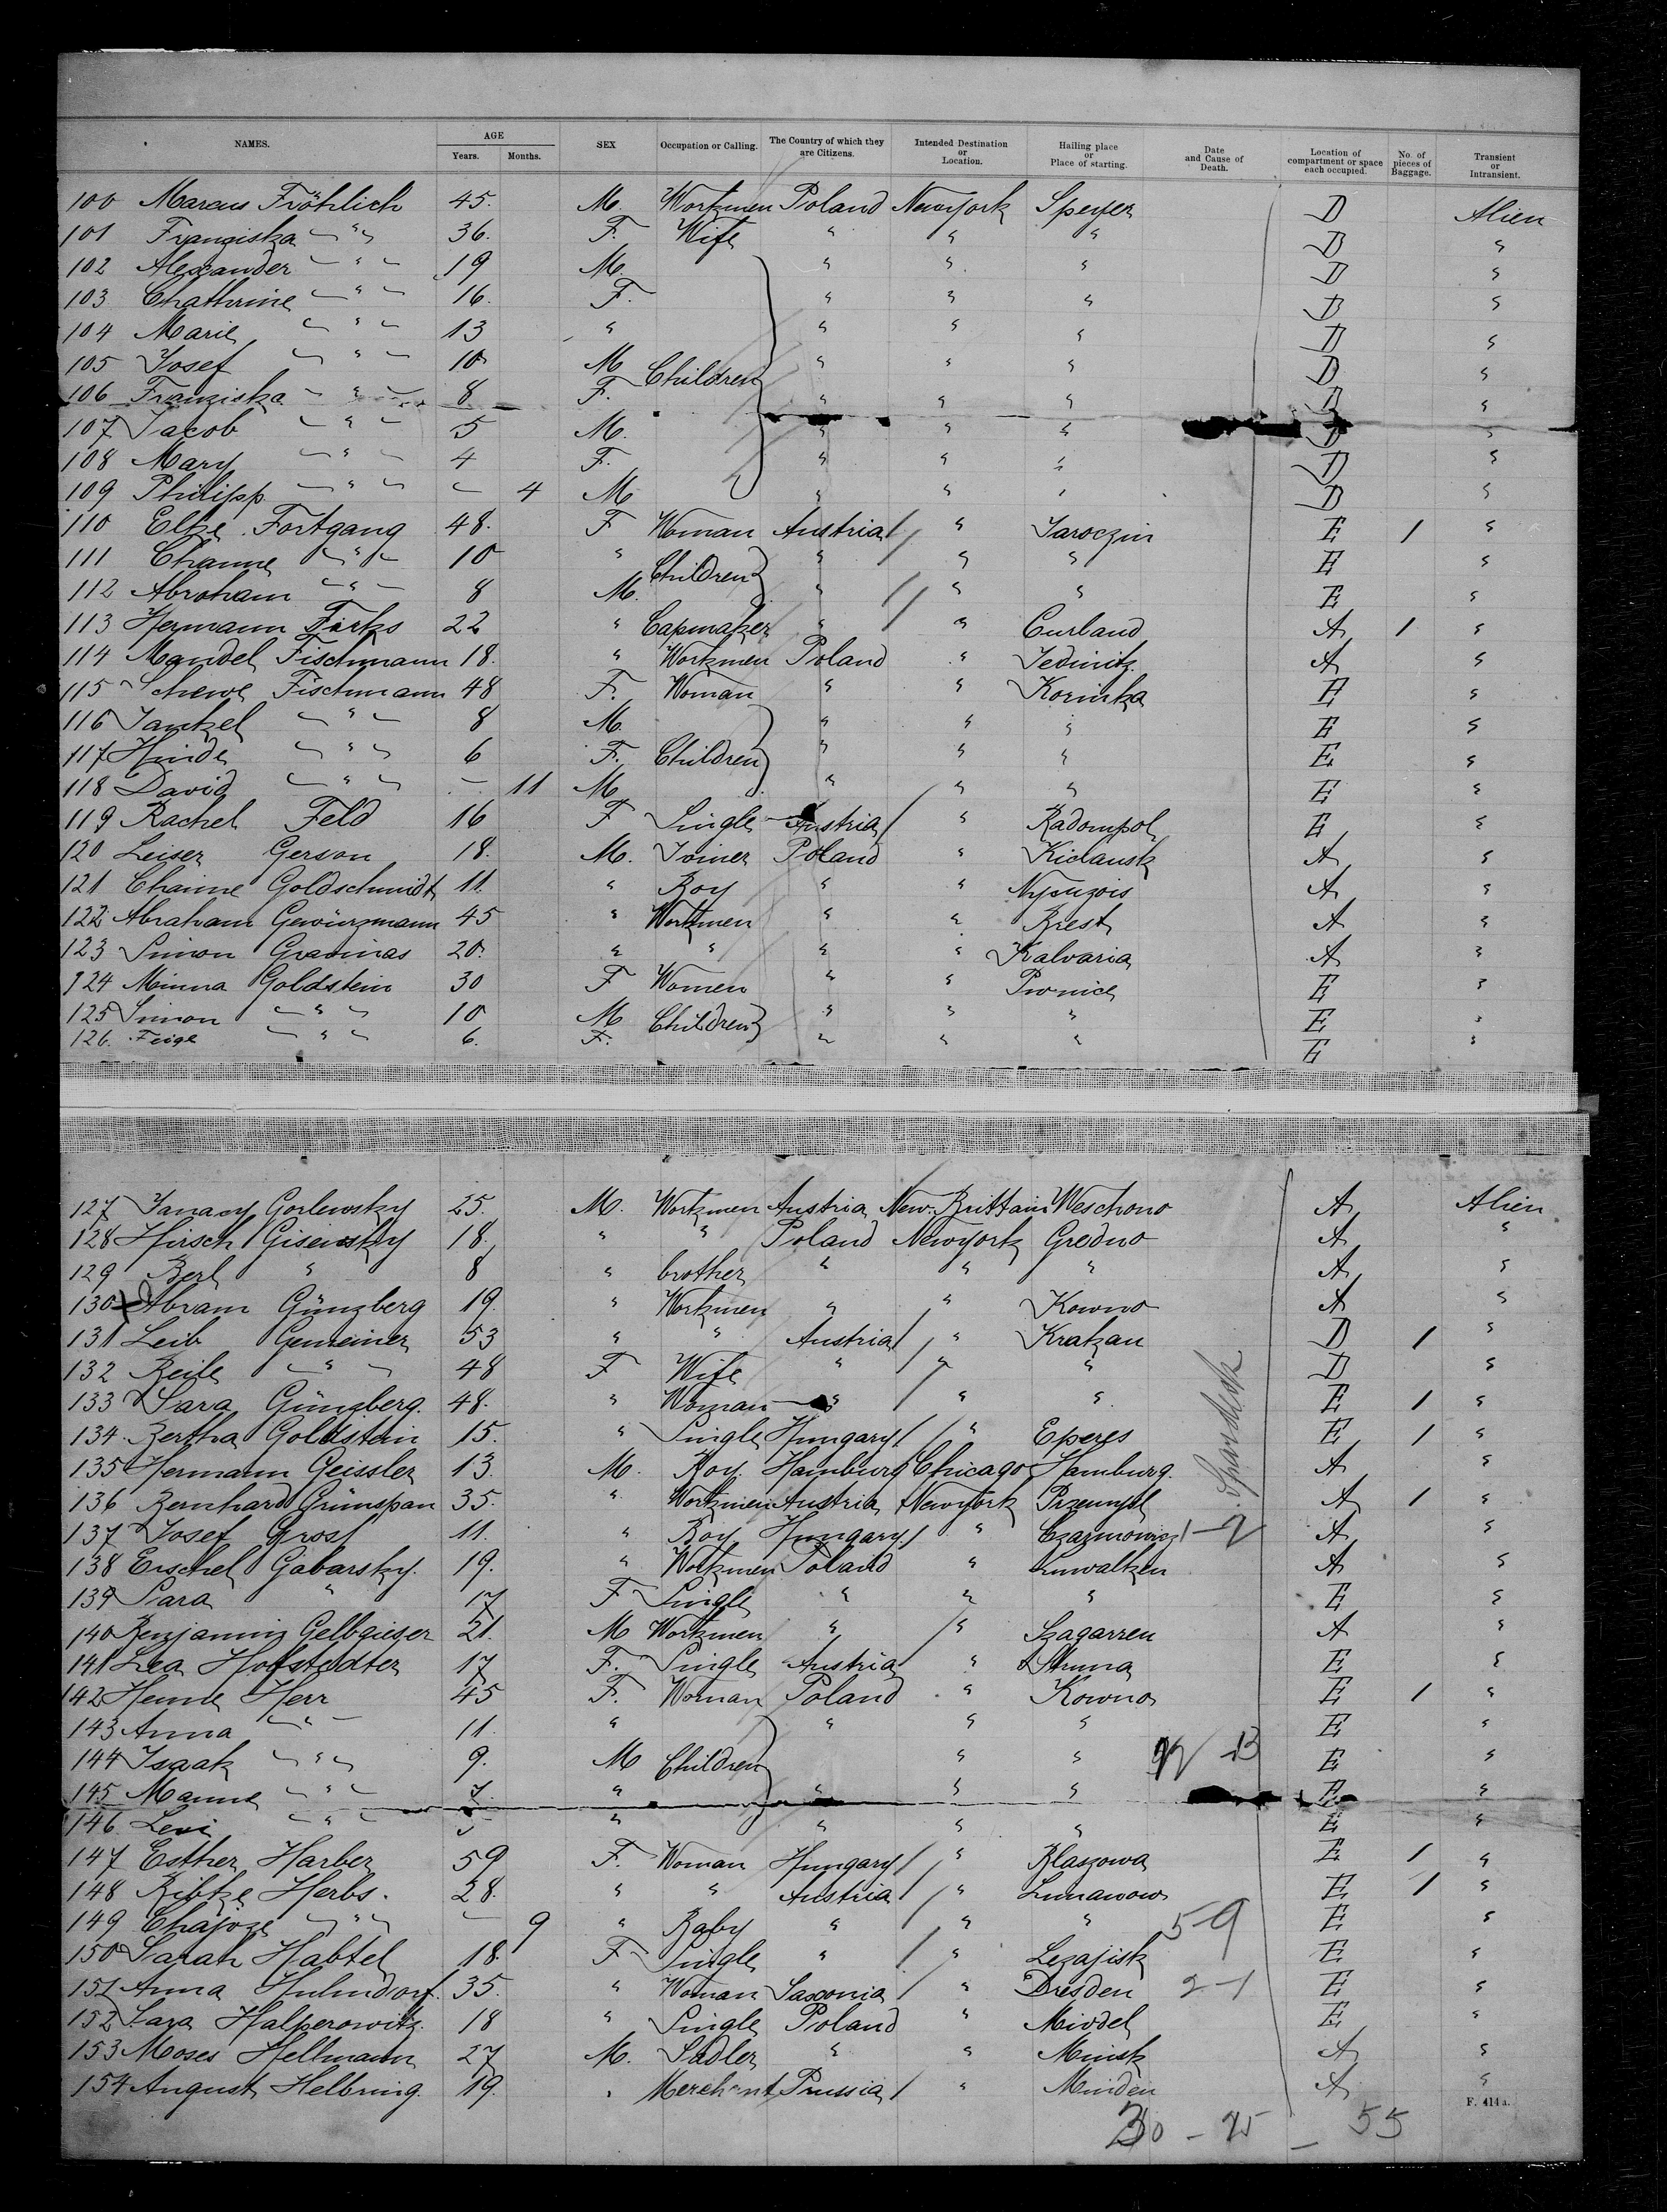 NAMES. AGE SEX Occupation or Calling. The Country of which they are Citizens. Intended Destination or Location. Hailing place or Place of starting. Date and Cause of Death. Location of compartment or space each occupied. No. of pieces of Baggage. Transient or Intransient.
Years. Months.
100 Marcus Fröhlich 45. M. Workmen Poland Newyork Speyer D Alien
101 Franziska " 36. F. Wife " " " D "
102 Alexander " 19 M. " " " D "
103 Chathrine " 16. F. " " " D "
104 Marie " 13 " " " " D "
105 Josef " 10 M Children " " " D "
106 Franziska " 8 F. " " " D "
107 Jacob " 5 M. " " " D "
108 Mary " 4 F. " " " D "
109 Philipp " — 4 M " " " D "
110 Elke Fortgang 48. F Woman Austria / " Jaroczin E 1 "
111 Channe " 10 " Children " " " E "
112 Abraham " 8 M. " / " " E "
113 Hermann Forks 22 " Capmaker " / " Curland A 1 "
114 Mandel Fischmann 18. " Workmen Poland " Jedinitz A "
115 Schewe Fischmann 48 F. Woman " " Korinka E "
116 Jankel " 8 M. " " " E "
117 Hinde " 6 F. Children " " " E "
118 David " — 11 M " " " E "
119 Rachel Feld 16 F Single Austria / " Radompol E "
120 Leiser Gerson 18. M. Joiner Poland " Kiclansk A "
121 Chaime Goldschmidt 11. " Boy " " A "
122 Abraham Gewürzmann 45 " Workmen " " Brest A "
123 Simon Gradinas 20. " " " " Kalvaria A "
124 Minna Goldstein 30 F Women " " Pronice E "
125 Simon " 10 M Children " " " E "
126. Feige " 6. F. " " " E "
127 Janacy Gorlewsky 25. M. Workmen Austria New-Brittain Weschono A Alien
128 Hirsch Gisensky 18. " " Poland Newyork Gredno A "
129 Berl " 8 " brother " " " A "
130 X Abram Günzberg 19. " Workmen " " Kowno A "
131 Leib Gemeiner 53 " " Austria / " Krakau D 1 "
132 Beile " 48 F Wife " " " D "
133 Sara Günzberg. 48. " Woman " / " " E 1 "
134. Bertha Goldstein 15. " Single Hungary / " Eperes E 1 "
135 Hermann Geissler 13. M. Boy. Hamburg Chicago Hamburg. A "
136 Bernhard Grünspan 35. " Workmen Austria Newyork Przemysl A 1 "
137 Josef Gross 11. " Boy Hungary / " Czarnowicz 1-2 A "
138 Erschel Gabarsky. 19. " Workmen Poland " Suwalken A "
139 Sara " 17 F Single " " " E "
140 Benjamin Gelbgieser 21. M Workmen " " Szagarren A "
141 Lea Hofstedter 17 F. Single Austria " Struna E "
142 Henne Herr 45 F. Woman Poland " Kowno E 1 "
143 Anna " 11. " " " " E "
144 Isaak " 9. M Children " " E "
145 Manne " 7. " " " " E "
146. Levi " 5 " " " " E "
147 Esther Harber 59 F. Woman Hungary / " Blaszowa E 1 "
148 Ribke Herbs. 28. " " Austria / " Limanow E 1 "
149 Chajoze " — 9 " Baby " " " 5-9 E "
150 Sarah Habtel 18. F Single " / " Lezajisk E "
151 Anna Hulmdorf. 35. " Woman Saxonia / " Dresden 2-1 E "
152 Sara Halperowitz. 18 " Single Poland " Miodel E "
153 Moses Hellmann 27 M. Sadler " " Minsk A "
154 August Helbring. 19. " Merchant Prussia / " Minden A "
F. 414 a.
30 - 25 - 55